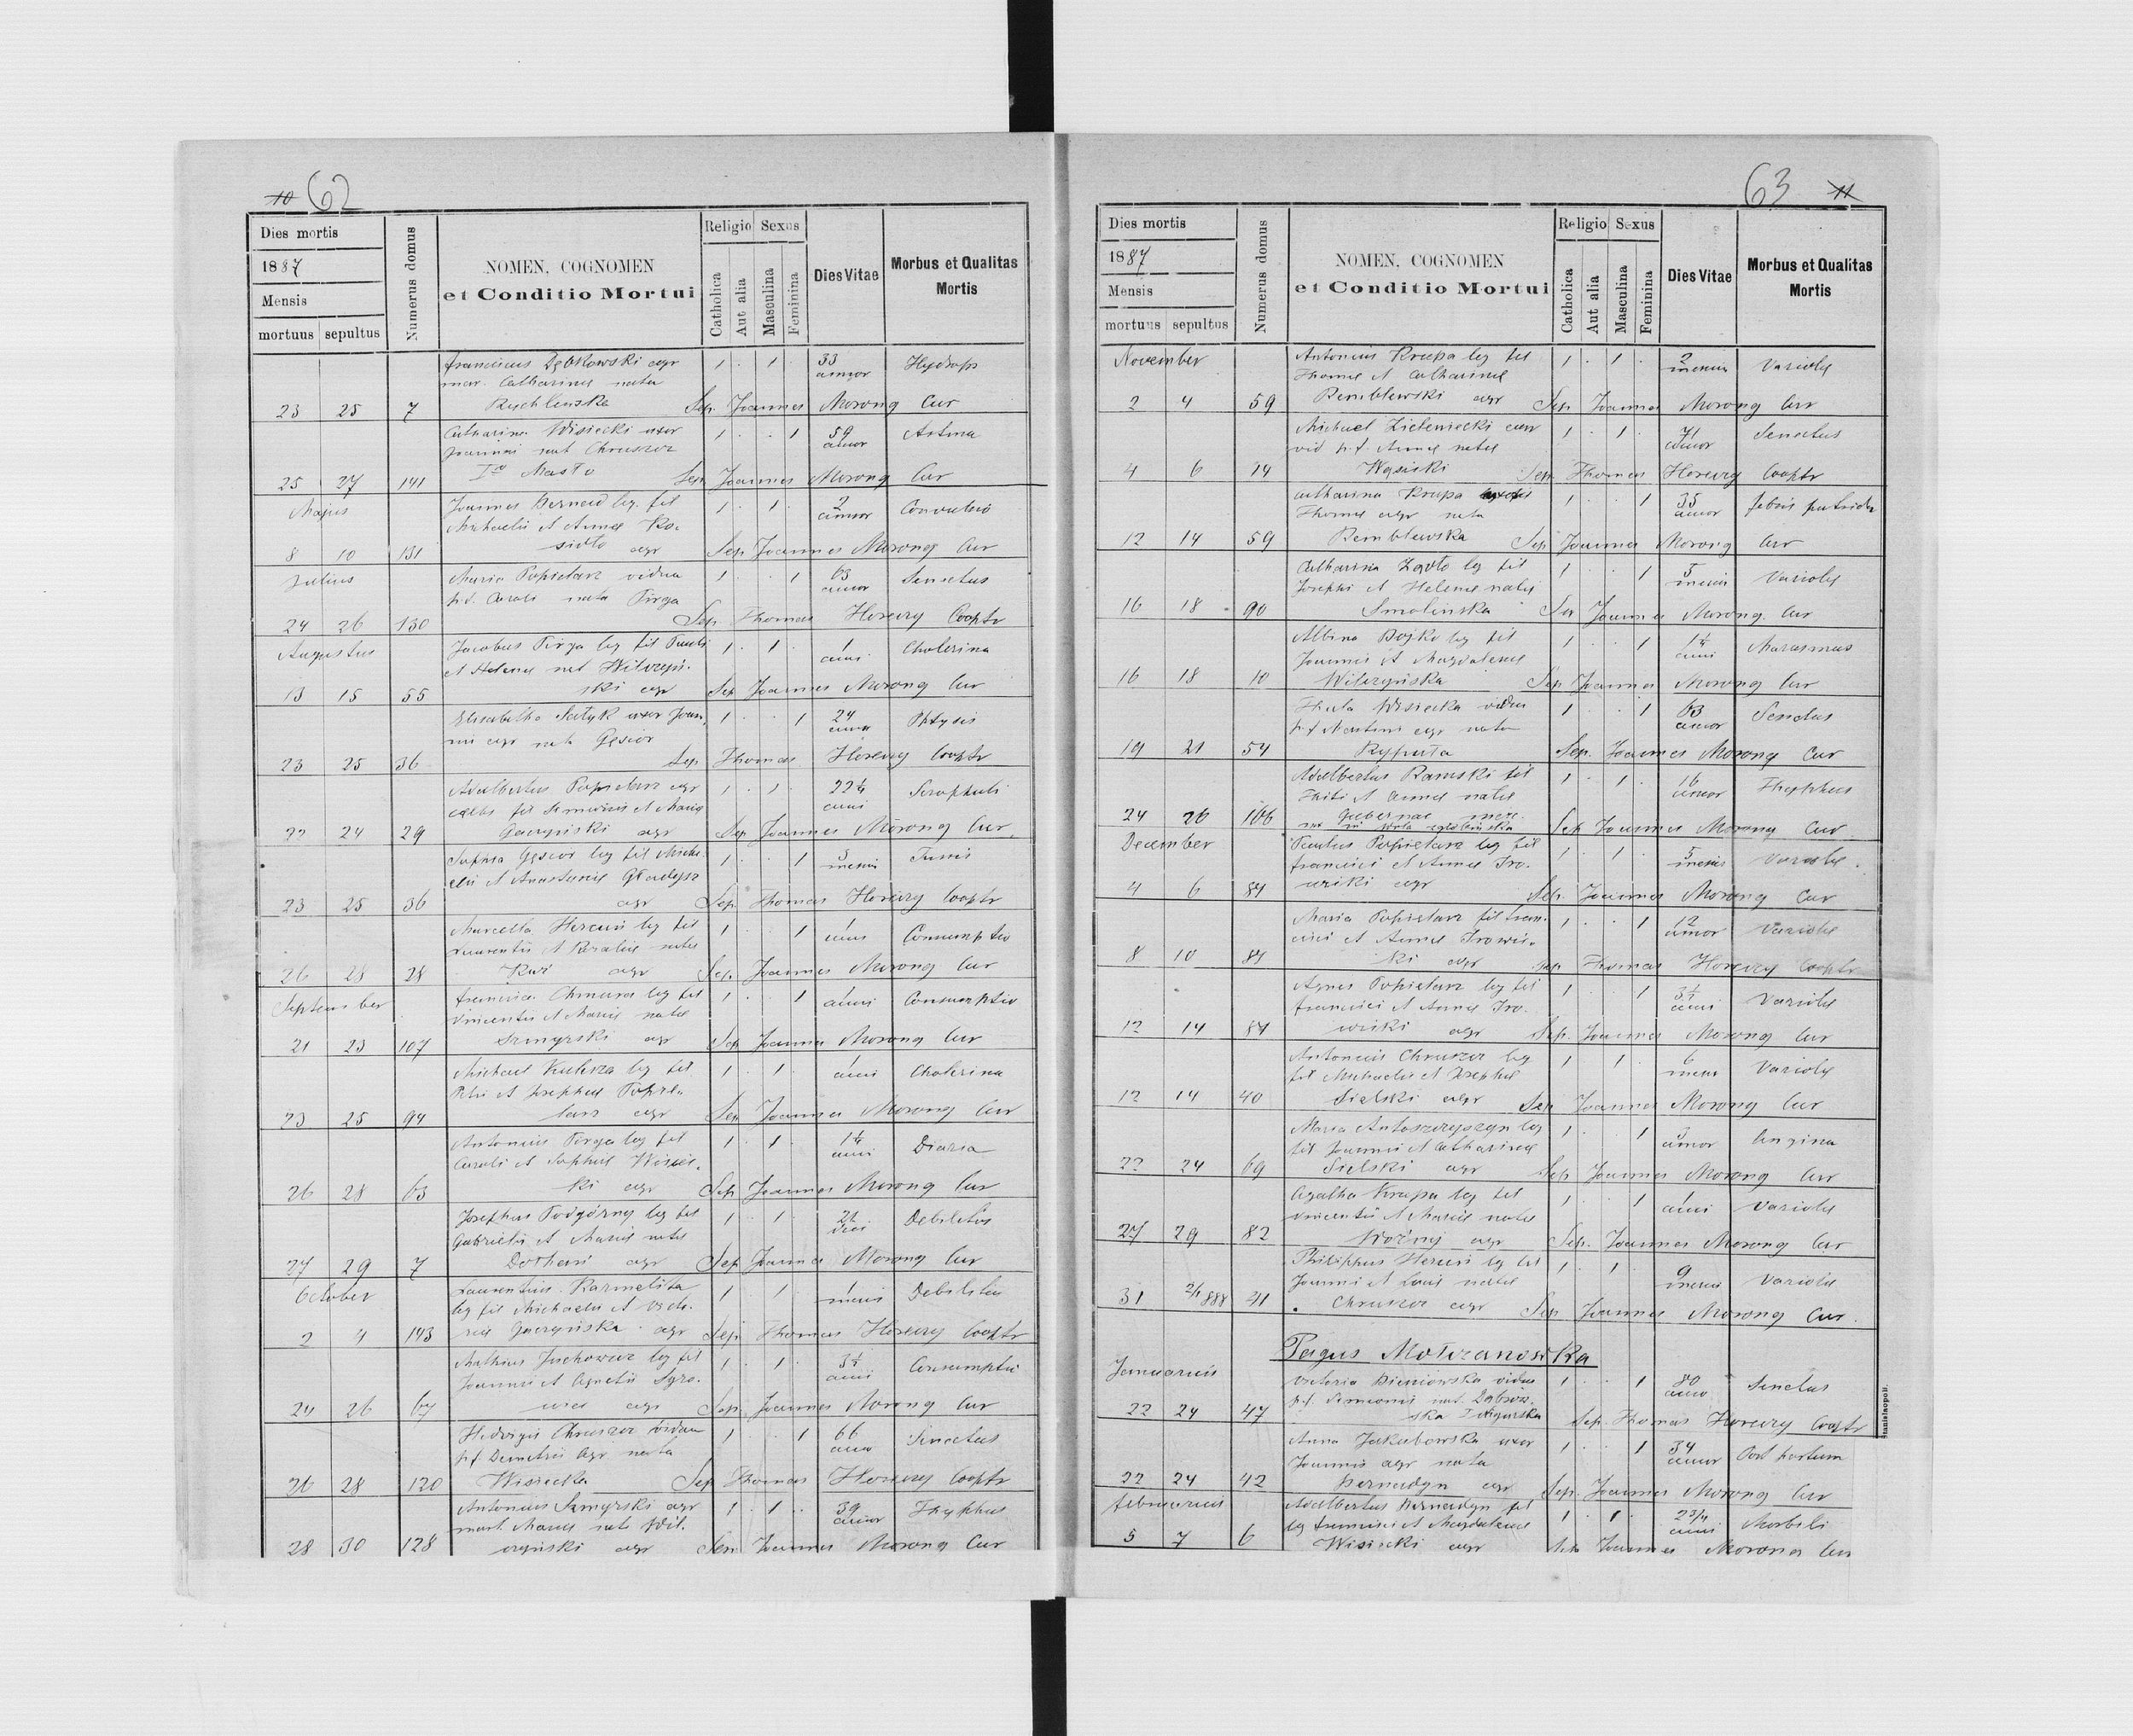 10 62
Dies mortis
1887
Mensis
mortuus sepultus
Numerus domus
NOMEN, COGNOMEN
et Conditio Mortui
Religio Sexus
Catholica
Aut alia
Masculina
Feminina
Dies Vitae
Morbus et Qualitas
Mortis
Franciscus Dębkowski agr 1 · 1 · 33 Hydrops
mar. Catharinae nata annor
23 25 7 Rychlinska Sep. Joannes Morong Cur
Catharina Wisiecki uxor 1 · · 1 59 Astma
Joannis nat Chruszcz annor
25 27 141 Io Masło Sep Joannes Morong Cur
Majus Joannes Bernard leg. fil 1 · 1 · 2 Convulsio
Michaelis et Annae Ko- annor
8 10 131 siołο agr Sep Joannes Morong Cur
Julius Maria Popielarz vidua 1 · · 1 63 Senectus
p.d. Caroli nata Pirga annor
24 26 130 Sep Thomas Horeczy Cooptr
Augustus Jacobus Pirga leg fil Pauli 1 · 1 · 1 Cholerina
et Helenae nat Wilczyń- anni
13 15 55 ski agr Sep Joannes Morong Cur
Elisabetha Sałyk uxor Joan- 1 · · 1 24 Phtysis
nis agr nata Gęsior annor
23 25 36 Sep Thomas Horeczy Cooptr
Adalbertus Popielarz agr 1 · 1 · 22½ Scrophuli
caelbs fil Simeonis et Mariae anni
22 24 29 Gaczyński agr Sep Joannes Morong Cur
Sophia Gęsior leg fil Micha- 1 · · 1 5 Tussis
elis et Anastasiae Gładysz mensis
23 25 36 agr Sep Thomas Horeczy Cooptr
Marcella Hercuń leg fil 1 · · 1 1 Consumptio
Laurentii et Rosaliae natae anni
26 28 28 Kuź agr Sep Joannes Morong Cur
September Francisca Chmura leg fil 1 · · 1 1 Consumptio
Vincentii et Mariae natae anni
21 23 107 Szmyrski agr Sep Joannes Morong Cur
Michael Kulesza leg fil 1 · 1 · 1 Cholerina
Petri et Josephae Popie- anni
23 25 94 larz agr Sep Joannes Morong Cur
Antonius Pirga leg fil 1 · 1 · 1½ Diaria
Caroli et Sophiae Wisiec- anni
26 28 63 ki agr Sep Joannes Morong Cur
Josephus Podgórny leg fil 1 · 1 · 21 Debilitas
Gabrielis et Mariae natae diei
27 29 7 agr Sep Joannes Morong Cur
October Laurentius Karmelita 1 1 · 1 Debilitas
leg fil Michaelis et mensis
2 4 143 Gaczyńska agr Sep Thomas Horeczy Cooptr
Mathias Juchowicz leg fil 1 · 1 · 3½ Consumptio
Joannis et Agnetis anni
24 26 67 agr Sep Joannes Morong Cur
Hedvigis Chruszcz vidua 1 · · 1 66 Senectus
p.d Demetrii agr nata anno
26 28 120 Wisiecka Sep Thomas Horeczy Cooptr
Antonius Szmyrski agr 1 · 1 · 39 Thyphus
marit. Mariae nata Wil- annor
28 30 128 czyński agr Sep Joannes Morong Cur
63 11
Dies mortis
1887
Mensis
mortuus sepultus
Numerus domus
NOMEN, COGNOMEN
et Conditio Mortui
Religio Sexus
Catholica
Aut alia
Masculina
Feminina
Dies Vitae
Morbus et Qualitas
Mortis
November Antonius Krupa leg fil 1 · 1 · 2 Variolae
Thomae et Catharinae mensis
2 4 59 Remblewski agr Sep Joannes Morong Cur
Michael Zieleniecki 1 · 1 · 71 Senectus
vid p.d. Annae natae annor
4 6 14 Wąsiski Sep Thomas Horeczy Cooptr
Catharina Krupa 1 · · 1 35 febris putrida
Thomae agr nata annor
12 14 59 Remblewska Sep Joannes Morong Cur
Catharina Zgoło leg fil 1 · · 1 5 Variolae
Josephi et Helenae natae mensis
16 18 90 Smolinska Sep Joannes Morong Cur
Albina Bojko leg fil 1 · · 1 1½ Marasmus
Joannis et Magdalenae anni
16 18 10 Wilczyńska Sep Joannes Morong Cur
Thecla Wisiecka vidua 1 · · 1 63 Senectus
p.d Martini agr nata annor
19 21 54 Ryputa Sep. Joannes Morong Cur
Adalbertus Ramski fil 1 · 1 · 16 Thyphus
et Annae natae annor
24 26 106 Gubernat Sep Joannes Morong Cur
December Paulus Popielarz leg fil 1 · 1 · 5 Variolae
Francisci et Annae Iro- mensis
4 6 84 wiski agr Sep. Joannes Morong Cur
Maria Popielarz fil Fran- 1 · · 1 12 Variolae
cisci et Annae Irowis- annor
8 10 84 ki agr Sep Thomas Horeczy Cooptr
Agnes Popielarz leg fil 1 · · 1 3½ Variolae
Francisci et Annae Iro- anni
12 14 84 wiski agr Sep. Joannes Morong Cur
Antonius Chruszcz leg 1 · 1 · 6 Variolae
fil Michaelis et Josephae mens
12 14 40 Sielski agr Sep Joannes Morong Cur
Maria Antoszczyszyn leg 1 · · 1 3 Angina
fil Joannis et Catharinae annor
22 24 69 Sielski agr Sep Joannes Morong Cur
Agatha Krupa leg fil 1 · · 1 1 Variolae
Vincentii et Mariae natae anni
27 29 82 Woźnij agr Sep. Joannes Morong Cur
Philippus Hercuń leg fil 1 · 1 · 9 Variolae
Joannis et natae mensis
31 2/1 888 41 Chruszcz agr Sep Joannes Morong Cur.
Pagus Mołczanowka
Januarius Victoria Bieniowska vidua 1 · · 1 80 Senectus
p.d. Simeonis nat. Dąbrow- anno
22 24 47 ska Sep. Thomas Horeczy Cooptr
Anna Jakubowska uxor 1 · · 1 34 Post partum
Joannis agr nata annor
22 24 42 Bernadyn agr Sep. Joannes Morong Cur
Februarius Adalbertus Bernadyn fil 1 · 1 · 2 3/4 Morbili
leg Francisci et Magdalenae anni
5 7 6 Wisiecki agr Sep Joannes Morong Cur